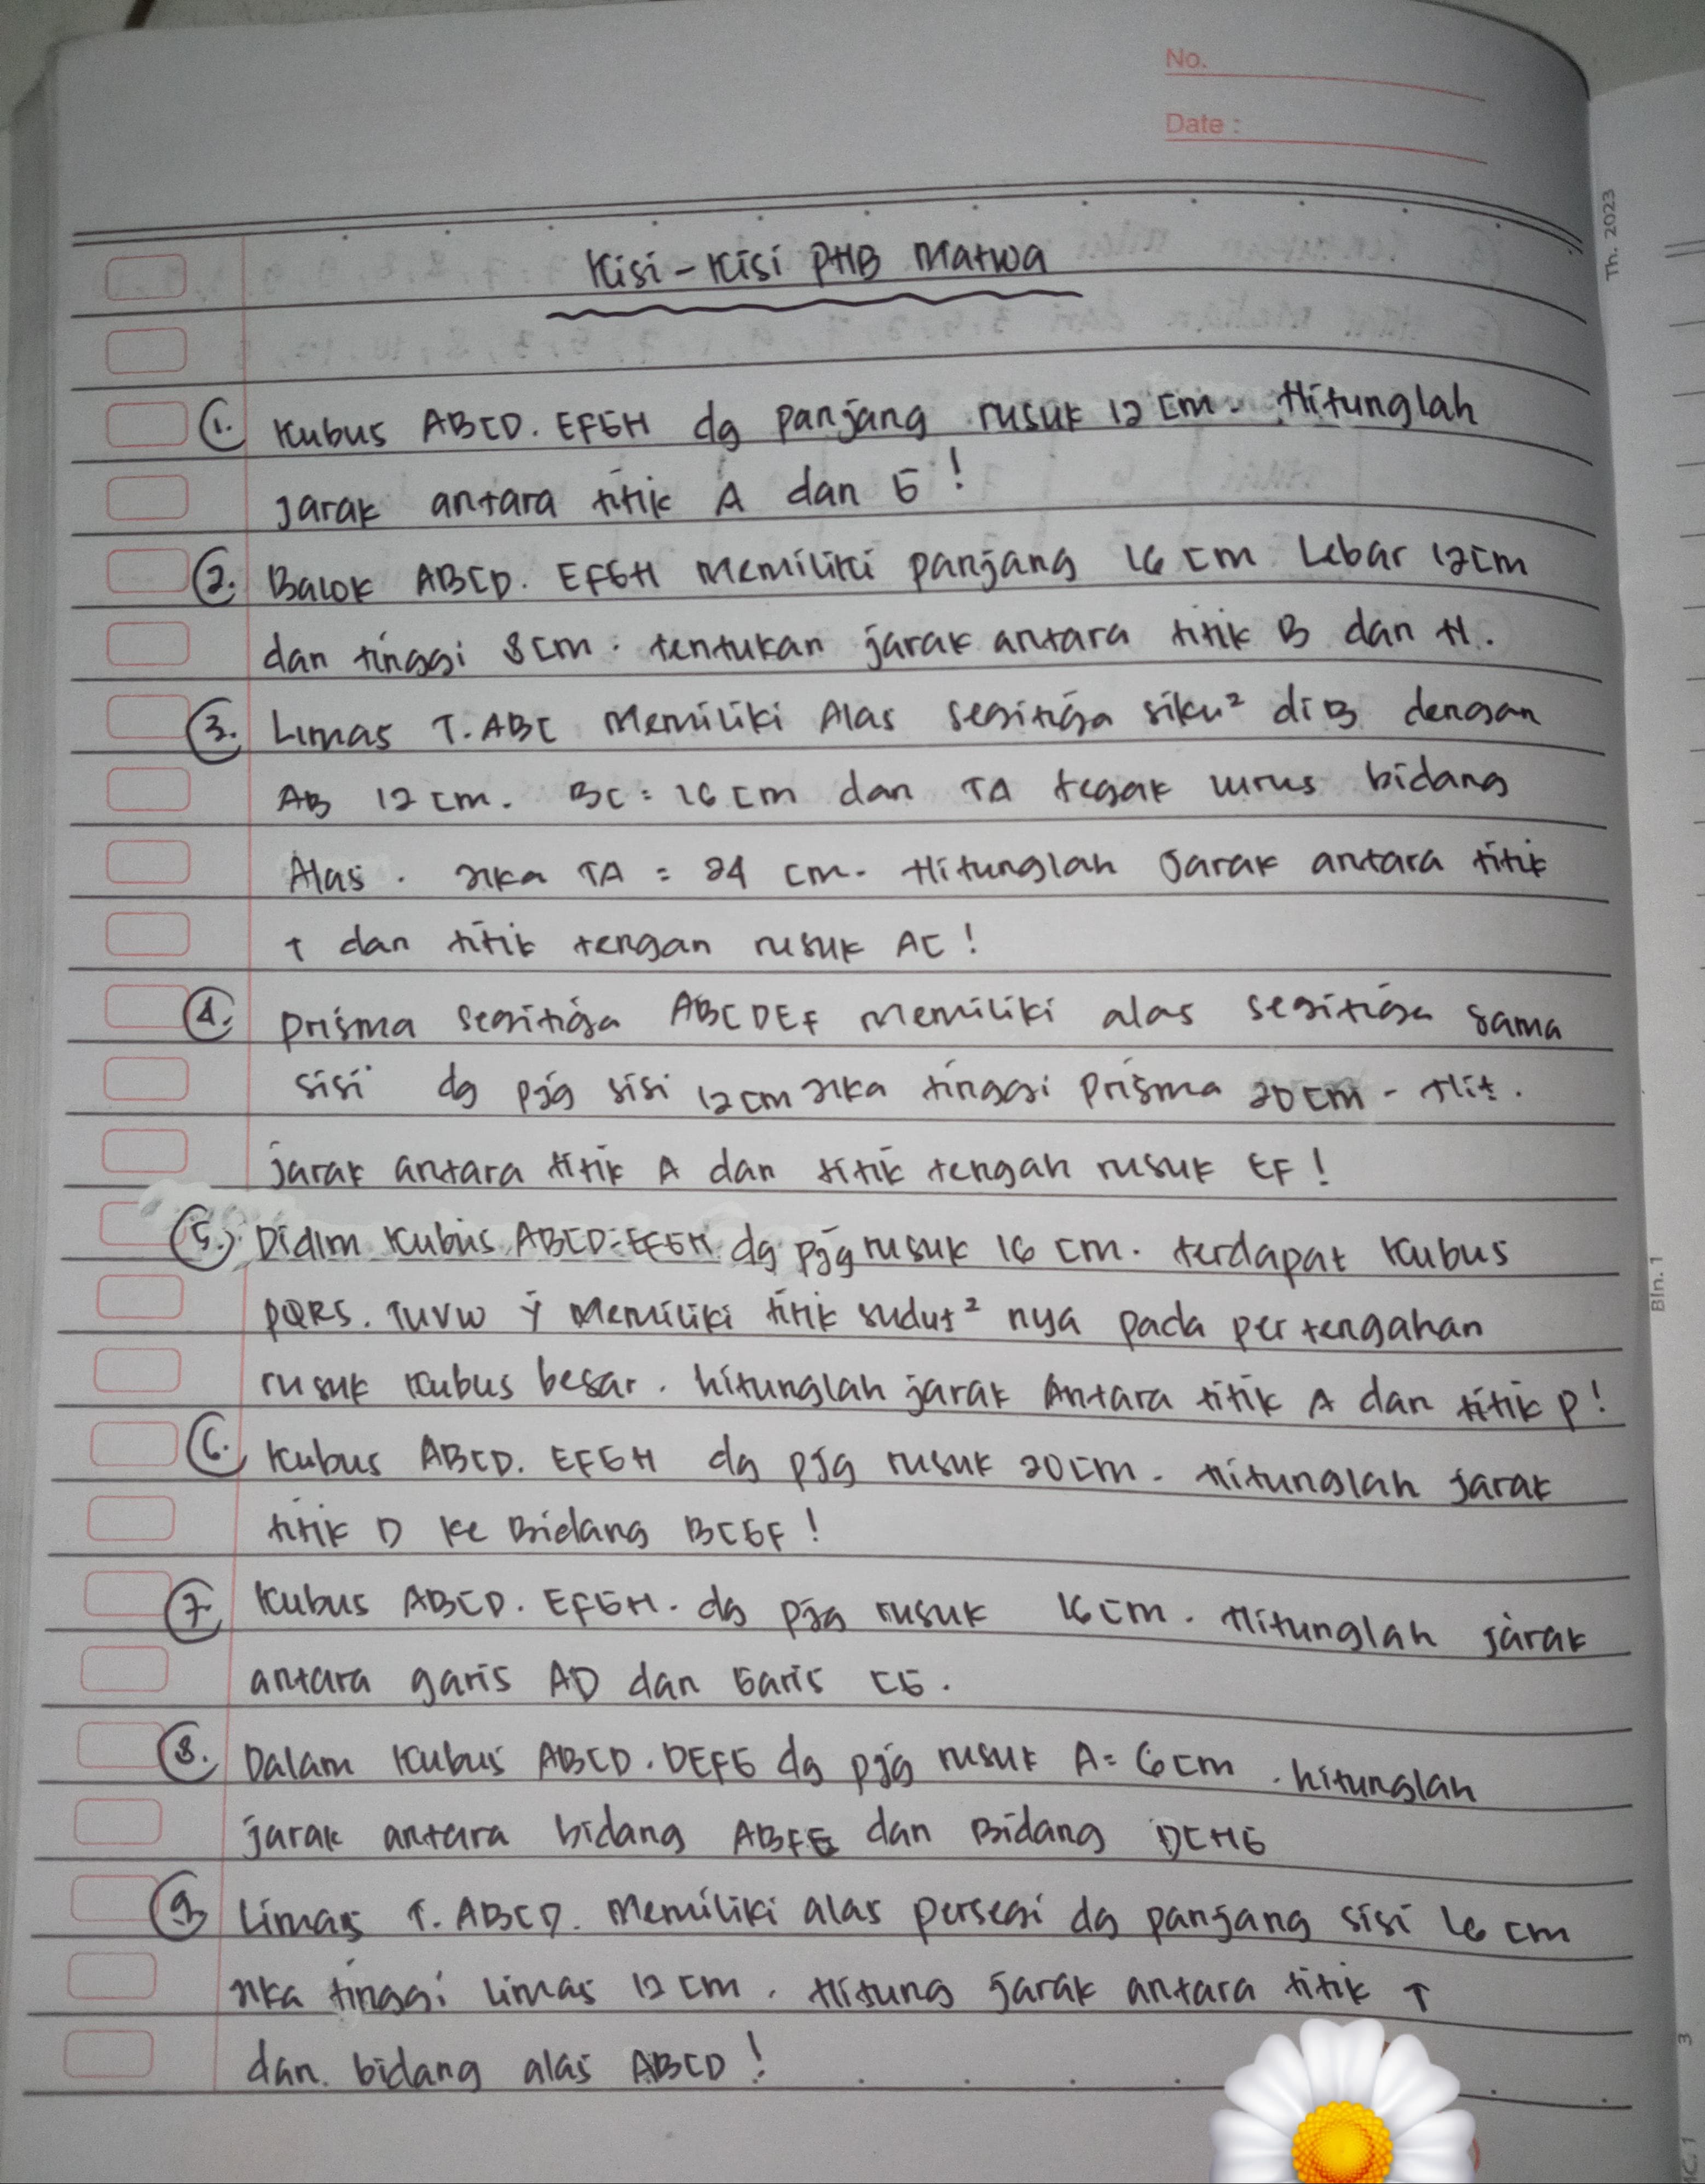 No.
Date :
Th. 2023
Kisi-Kisi PHB Matwa
1. Kubus ABCD. EFGH dg panjang rusuk 12 cm. Hitunglah
jarak antara titik A dan G!
2. Balok ABCD. EFGH memiliki panjang 16 cm Lebar 12 cm
dan tinggi 8 cm. tentukan jarak antara titik B dan H.
3. Limas T.ABC memiliki Alas segitiga siku² di B dengan
AB 12 cm. BC = 16 cm dan TA tegak lurus bidang
Alas. Jika TA = 24 cm. Hitunglah Jarak antara titik
T dan titik tengah rusuk AC!
4. Prisma segitiga ABCDEF memiliki alas segitiga sama
sisi dg pjg sisi 12 cm Jika tinggi Prisma 20 cm - Hit.
jarak antara titik A dan titik tengah rusuk EF!
5. Didlm Kubus ABCD.EFGH dg pjg rusuk 16 cm. terdapat Kubus
PQRS. TUVW ẏ memiliki titik sudut² nya pada pertengahan
rusuk kubus besar. hitunglah jarak Antara titik A dan titik P!
6. Kubus ABCD. EFGH dg pjg rusuk 20 cm. Hitunglah jarak
titik D ke Bidang BCGF!
7. Kubus ABCD. EFGH. dg pjg rusuk 16 cm. Hitunglah jarak
antara garis AD dan Garis CG.
8. Dalam Kubus ABCD.DEFG dg pjg rusuk A= 6 cm. hitunglah
jarak antara bidang ABFE dan Bidang DCHG
9 Limas T.ABCD. Memiliki alas persegi dg panjang sisi 16 cm
Jika tinggi Limas 12 cm. Hitung jarak antara titik T
dan. bidang alas ABCD!
Bln. 1
3